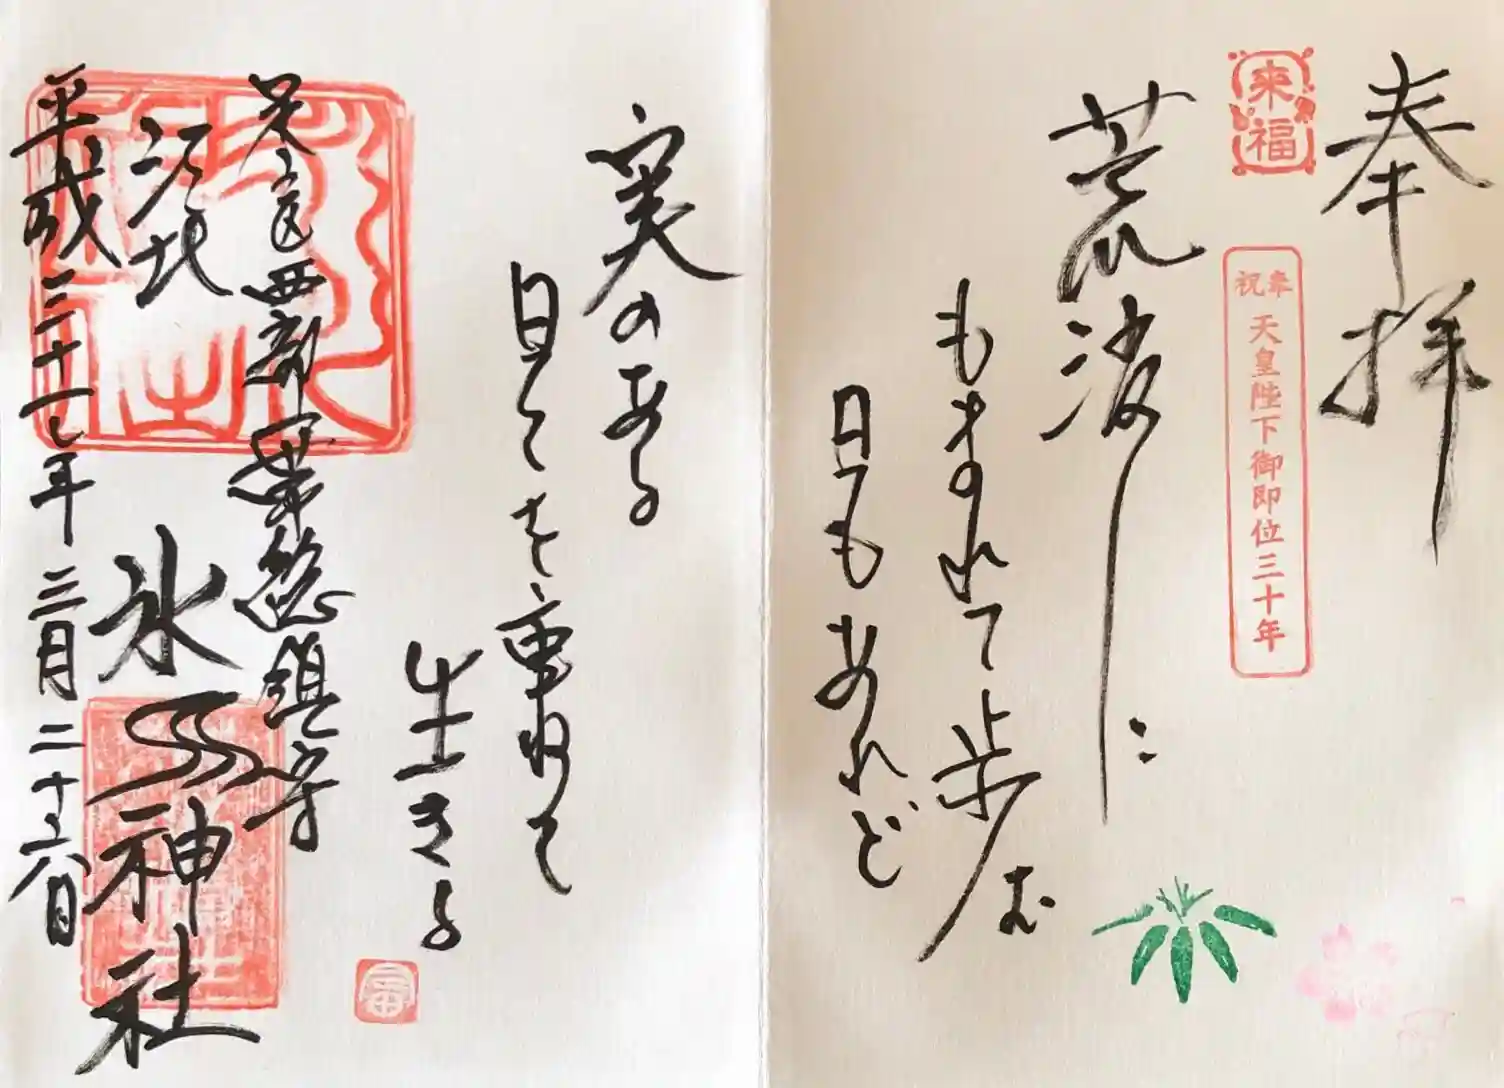 奉拝
來福
奉祝
天皇陛下御即位三十年
荒波に
もまれて歩む
日もあれど
実のある
日々を重ねて
生きる
足立区西部一帯総鎮守
江北
氷川神社
平成三十一年三月二十六日